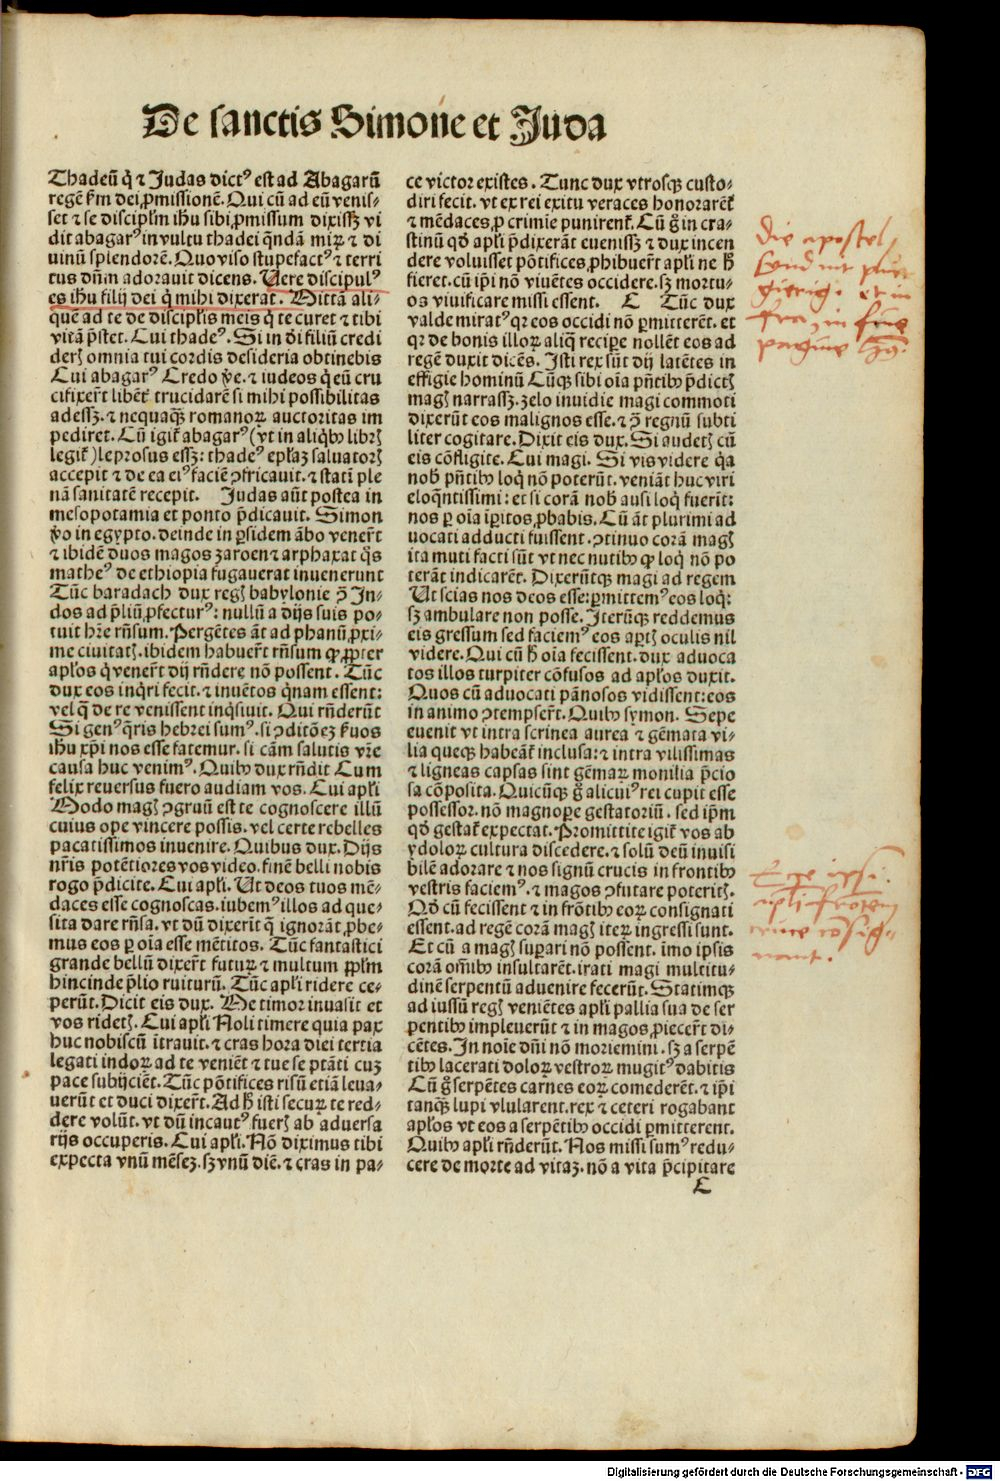 De sanctis Simone et Juda
Thadeū q̇ ⁊ Judas dictꝰ est ad Abagarū
regē ẜm dei ꝓmissionē. Qui cū ad eū venis⸗
set ⁊ se discipłm ihu sibi ꝓmissum dixissꝫ vi
dit abagarꝰ in vultu thadei qndā mirꝝ ⁊ di
uinū splendorē. Quo viso stupefactꝰ ⁊ terri
tus dūm adorauit dicens. Uere discipulꝰ
es ihu filij dei q̇ mihi dixerat. Mittā ali⸗
quē ad te de discipłis meis q̇ te curet ⁊ tibi
vitā p̄stet. Cui thadeꝰ. Si in di filiū credi
derꝭ omnia tui cordis desideria obtinebis
Cui abagarꝰ Credo v̄e. ⁊ iudeos q̇ eū cru
cifixer̄t libēt trucidarē si mihi possibilitas
adessꝫ. ⁊ nequaq̄ꝫ romanoꝝ auctoritas im
pediret. Cū igiť abagarꝰ (vt in aliqbꝫ librꝭ
legiť) leprosus essꝫ: thadeꝰ epłaꝫ saluatorꝭ
accepit ⁊ de ea eiꝰ faciē ꝯfricauit. ⁊ statī ple
nā sanitatē recepit. Judas aūt postea in
mesopotamia et ponto p̄dicauit. Simon
v̄o in egypto. deinde in ꝑsidem ābo vener̄t
⁊ ibidē duos magos zaroen ⁊ arphaxat q̄s
matheꝰ de ethiopia fugauerat inuenerunt
Tūc baradach dux regꝭ babylonie ꝯ̄ In⸗
dos ad p̄liū ꝓfecturꝰ: nullū a dijs suis po⸗
tuit hr̄e rn̄sum. Pergētes āt ad phanū ꝓxi⸗
me ciuitatꝭ. ibidem habuer̄t rn̄sum ꝙ ꝓpter
apłos q̇ vener̄t dij rn̄dere nō possent. Tūc
dux eos inq̇ri fecit. ⁊ inuētos q̇nam essent:
vel q̄ de re venissent inq̇siuit. Qui rn̄derūt
Si genꝰ q̄ris hebrei sumꝰ. si ꝯditōeꝫ ẜuos
ihu xp̄i nos esse fatemur. si cām salutis vr̄e
causa huc venimꝰ. Quibꝫ dux rn̄dit Cum
felix reuersus fuero audiam vos. Cui apłi
Modo magꝭ ꝯgruū est te cognoscere illū
cuius ope vincere possis. vel certe rebelles
pacatissimos inuenire. Quibus dux. Dijs
nr̄is potētiores vos video. finē belli nobis
rogo p̄dicite. Cui apłi. Ut deos tuos mē⸗
daces esse cognoscas. iubemꝰ illos ad que⸗
sita dare rn̄sa. vt dū dixerīt q̄ ignorāt ꝓbe⸗
mus eos ꝑ oīa esse mētitos. Tūc fantastici
grande bellū dixer̄t futurꝝ ⁊ multum ppłm
hincinde p̄lio ruiturū. Tūc apłi ridere ce⸗
perūt. Dicit eis dux. Me timor inuasit et
vos ridetꝭ. Cui apłi Noli timere quia pax
huc nobiscū ītrauit. ⁊ cras hora diei tertia
legati indoꝝ ad te veniēt ⁊ tue se ptāti cuꝫ
pace subijciēt. Tūc pōtifices risū etiā leua⸗
uerūt et duci dixer̄t. Ad h̄ isti securꝝ te red⸗
dere volūt. vt dū incautꝰ fuerꝭ ab aduersa
rijs occuperis. Cui apłi. Nō diximus tibi
expecta vnū mēseꝫ. sꝫ vnū diē. ⁊ cras in pa⸗
ce victor existes. Tunc dux vtrosqꝫ custo⸗
diri fecit. vt ex rei exitu veraces honorareť
⁊ mēdaces ꝓ crimīe punirenť. Cū g̊ in cra⸗
stinū qd̓ apłi p̄dixerāt euenissꝫ ⁊ dux incen
dere voluisset pōtifices, ꝓhibuer̄t apłi ne h̄
fieret. cū ip̄i nō viuētes occidere. sꝫ mortu⸗
os viuificare missi essent. C Tūc dux
valde miratꝰ qꝛ eos occidi nō ꝑmitterēt. et
qꝛ de bonis illoꝝ aliq̄ reciꝑe nollēt eos ad
regē duxit dicēs. Isti rex sūt dij latētes in
effigie hominū Cūqꝫ sibi oīa pn̄tibꝫ p̄dictꝭ
magꝭ narrassꝫ. zelo inuidie magi commoti
dixerūt eos malignos esse. ⁊ ꝯ̄ regnū subti
liter cogitare. Dixit eis dux. Si audetꝭ cū
eis cōfligite. Cui magi. Si vis videre q̇a
nob̓ pn̄tibꝫ loq̇ nō poterūt. veniāt huc viri
eloq̄ntissimi: et si corā nob̓ ausi loq̇ fuerīt:
nos ꝑ oīa īꝑitos ꝓbabis. Cū āt plurimi ad
uocati adducti fuissent. ꝯtinuo corā magꝭ
ita muti facti sūt vt nec nutibꝫ ꝙ loq̇ nō po
terāt indicarēt. Dixerūtqꝫ magi ad regem
Ut scias nos deos esse: ꝑmittemꝰ eos loq̇:
sꝫ ambulare non posse. Iterūqꝫ reddemus
eis gressum sed faciemꝰ eos aꝑtꝭ oculis nil
videre. Qui cū h̄ oīa fecissent. dux aduoca
tos illos turpiter cōfusos ad apłos duxit.
Quos cū aduocati pānosos vidissent: eos
in animo ꝯtempser̄t. Quibꝫ symon. Sepe
euenit vt intra scrinea aurea ⁊ gēmata vi⸗
lia queqꝫ habeāť inclusa: ⁊ intra vilissimas
⁊ ligneas capsas sint gēmaꝝ monilia p̄cio
sa cōposita. Quicūqꝫ g̊ alicuiꝰ rei cupit esse
possessor. nō magnopere gestatoriū. sed ip̄m
qd̓ gestať expectat. Promittite igiť vos ab
ydoloꝝ cultura discedere. ⁊ solū deū inuisi
bilē adorare ⁊ nos signū crucis in frontibꝫ
vestris faciemꝰ. ⁊ magos ꝯfutare poteritꝭ.
Qd̓ cū fecissent ⁊ in frōtibꝫ eoꝝ consignati
essent. ad regē corā magꝭ iteꝝ ingressi sunt.
Et cū a magꝭ suꝑari nō possent. īmo ipsis
corā oīm̄ibꝫ insultarēt. irati magi multitu⸗
dinē serpentū aduenire fecerūt. Statimqꝫ
ad iussū regꝭ veniētes apłi pallia sua de ser
pentibꝫ impleuerūt ⁊ in magos ꝓiecer̄t di⸗
cētes. In noīe dn̄i nō moriemini. sꝫ a serpē
tibꝫ lacerati doloꝝ vestroꝝ mugitꝰ dabitis
Cū g̊ serpētes carnes eoꝝ comederēt. ⁊ ip̄i
tanqꝫ lupi vlularent. rex ⁊ ceteri rogabant
apłos vt eos a serpētibꝫ occidi ꝑmitterent.
Quibꝫ apłi rn̄derūt. Nos missi sumꝰ redu⸗
cere de morte ad vitaꝫ. nō a vita p̄cipitare
C
die apostel
Ecce ipsi
apłi frontem
cruce cōsig⸗
nant.
Digitalisierung gefördert durch die Deutsche Forschungsgemeinschaft - DFG